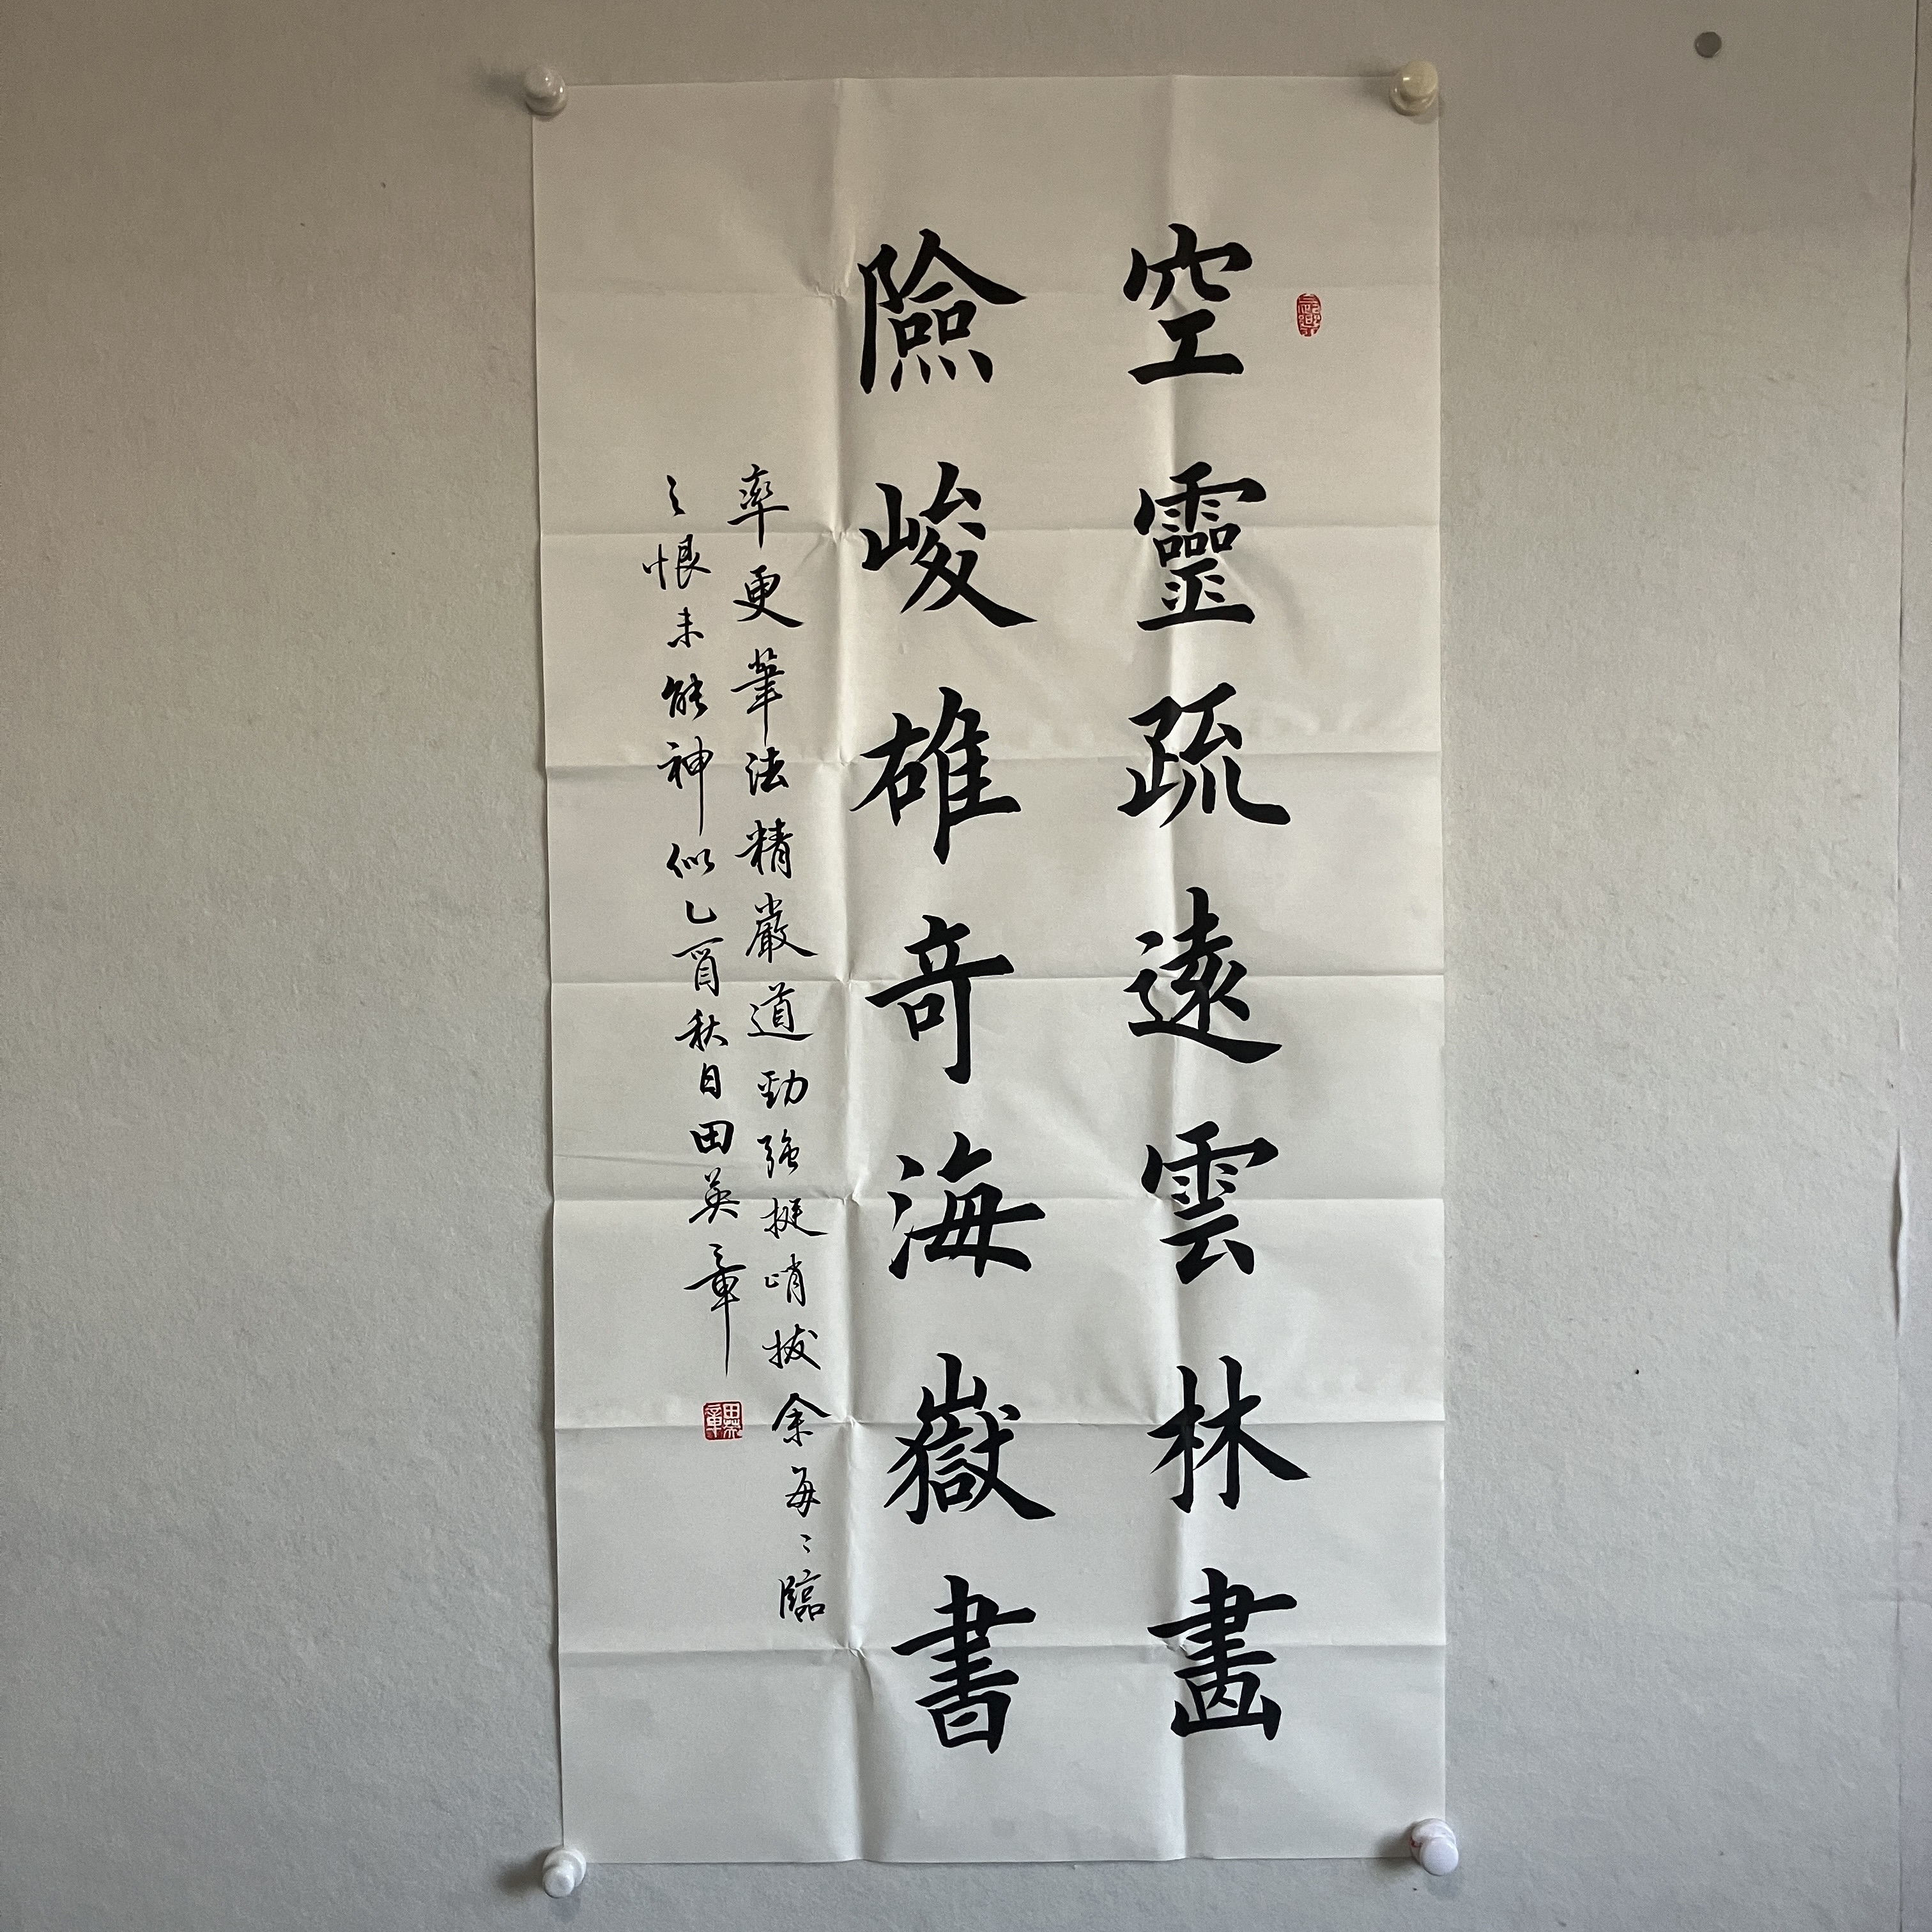 空靈疏遠雲林畵
險峻雄奇海嶽書
率更筆法精嚴道勁強挺峭拔余每〻臨
之恨未能神似乙酉秋日田英章
田英章